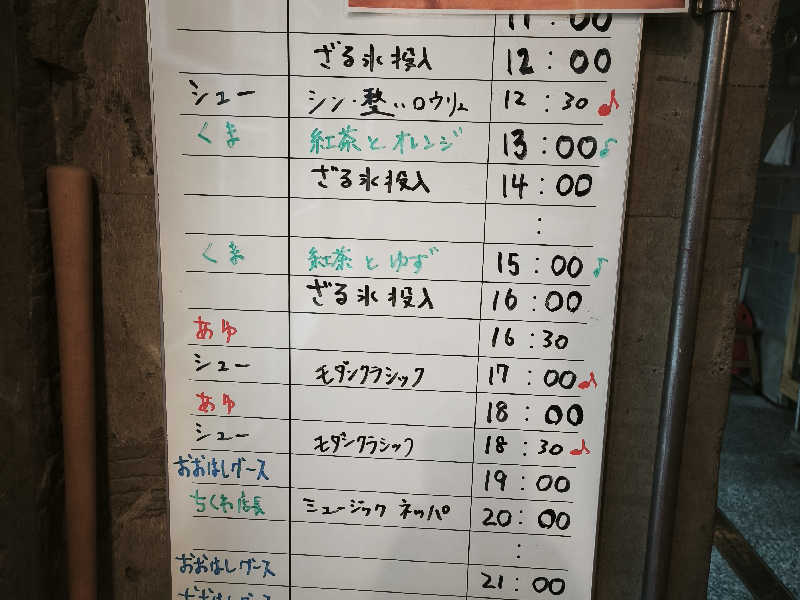 11:00
ざる氷投入 12:00
シュー シン・整いロウリュ 12:30♪
くま 紅茶とオレンジ 13:00♪
ざる氷投入 14:00
:
くま 紅茶とゆず 15:00♪
ざる氷投入 16:00
あゆ 16:30
シュー モダンクラシック 17:00♪
あゆ 18:00
シュー モダンクラシック 18:30♪
おおはしグース 19:00
ちくわ店長 ミュージックネッパ 20:00
:
おおはしグース 21:00